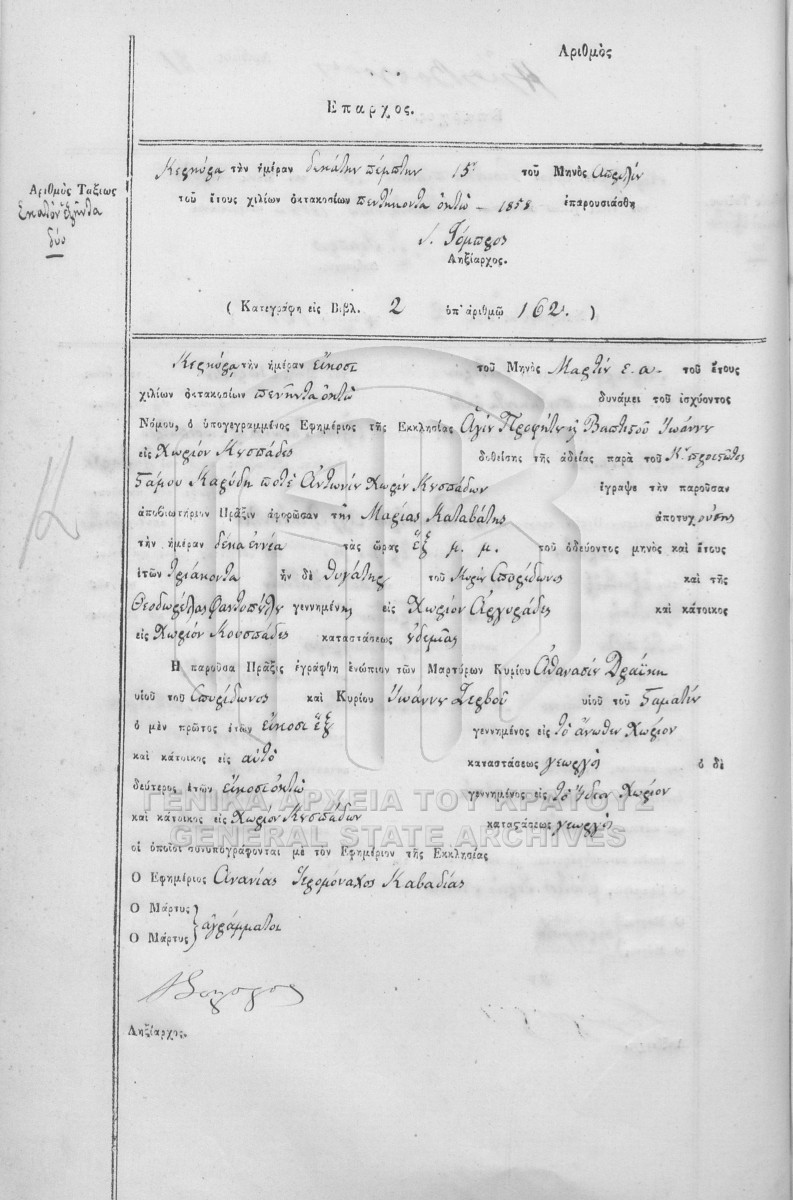 Ἀριθμὸς
Ἔπαρχος.
Ἀριθμὸς Τάξεως
Ἑκατὸν ἑξῆντα
δύο
Κερκύρα τὴν ἡμέραν δεκάτην πέμπτην 15 τοῦ Μηνὸς Ἀπριλίου
τοῦ ἔτους χιλίων ὀκτακοσίων πεντήκοντα ὀκτὼ – 1858 ἐπαρουσιάσθη
Ληξίαρχος.
( Κατεγράφη εἰς Βιβλ. 2 ὑπ' ἀριθμῷ 162. )
Κερκύρα τὴν ἡμέραν εἴκοσι τοῦ Μηνὸς Μαρτίου ε. α. τοῦ ἔτους
χιλίων ὀκτακοσίων πενῆντα ὀκτὼ δυνάμει τοῦ ἰσχύοντος
Νόμου, ὁ ὑπογεγραμμένος Ἐφημέριος τῆς Ἐκκλησίας Ἁγίου Προφήτου Βαπτιστοῦ Ἰωάννου
εἰς Χωρίον Κουσπάδες δοθείσης τῆς ἀδείας παρὰ τοῦ Κ. προεστῶτος
Σταμου Καρύδη ποτὲ Ἀντωνίου Χωρίου Κουσπάδων ἔγραψε τὴν παροῦσαν
ἀποβιωτήριον Πρᾶξιν ἀφορῶσαν τῆς Μαρίας Καταβάτης ἀποτυχούσης
τὴν ἡμέραν δέκα ἐννέα τὰς ὥρας ἓξ μ. μ. τοῦ ὁδεύοντος μηνὸς καὶ ἔτους
ἐτῶν τριάκοντα ἦν δὲ θυγάτηρ τοῦ Κυρίου Σπυρίδωνος καὶ τῆς
γεννημένης εἰς Χωρίον Ἀργυράδες καὶ κάτοικος
εἰς Χωρίον Κουσπάδες καταστάσεως οὐδεμίας
Ἡ παροῦσα Πρᾶξις ἐγράφθη ἐνώπιον τῶν Μαρτύρων Κυρίου Ἀθανασίου Δραΐκη
υἱοῦ τοῦ Σπυρίδωνος καὶ Κυρίου Ἰωάννου Ζερβοῦ υἱοῦ τοῦ Σταματίου
ὁ μὲν πρῶτος ἐτῶν εἴκοσι ἓξ γεννημένος εἰς τὸ ἄνωθεν Χωρίον
καὶ κάτοικος εἰς αὐτὸ καταστάσεως γεωργὸς ὁ δὲ
δεύτερος ἐτῶν εἴκοσι ὀκτὼ γεννημένος εἰς τὸ ἴδιον Χωρίον
καὶ κάτοικος εἰς Χωρίον Κουσπάδων καταστάσεως γεωργὸς
οἱ ὁποῖοι συνυπογράφονται μὲ τὸν Ἐφημέριον τῆς Ἐκκλησίας
Ὁ Ἐφημέριος Ἀνανίας Ἱερομόναχος Καβαδίας
Ὁ Μάρτυς
ἀγράμματοι
Ὁ Μάρτυς
Ληξίαρχος.
ΓΕΝΙΚΑ ΑΡΧΕΙΑ ΤΟΥ ΚΡΑΤΟΥΣ
GENERAL STATE ARCHIVES